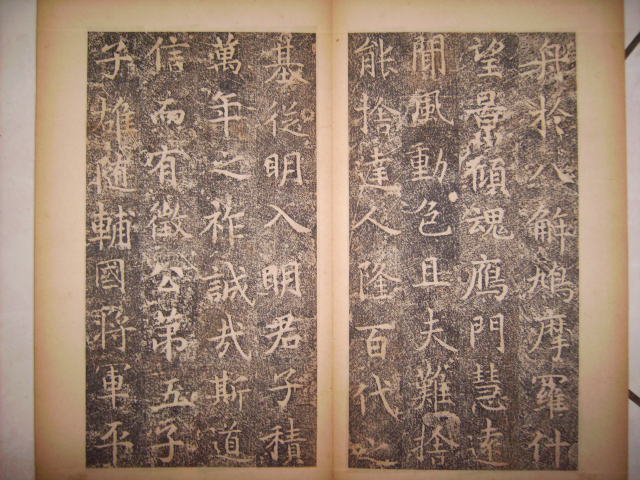 舟於八解鳩摩羅什
望景傾魂鴈門慧遠
聞風動色且夫難捨
能捨達人隆百代之
基從明入明君子積
萬年之祚誠哉斯道
信而有徵公第五子
子雄随輔國將軍平